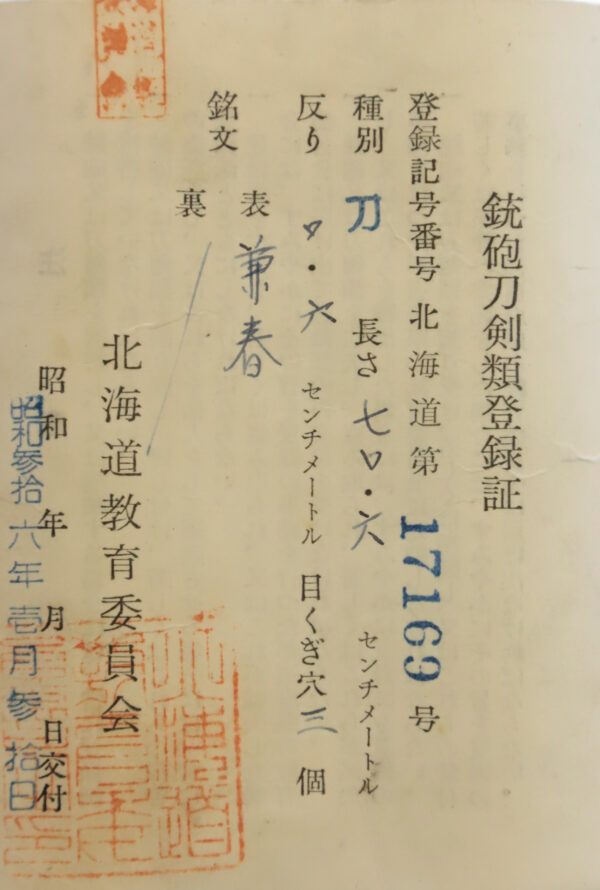 銃砲刀剣類登録証
登録記号番号 北海道第 17169 号
種別 刀 長さ 七〇・六 センチメートル
反り 〇・六 センチメートル 目くぎ穴 三 個
銘文 表 兼春
裏
北海道教育委員会
昭和 年 月 日交付
昭和参拾六年壱月参拾日